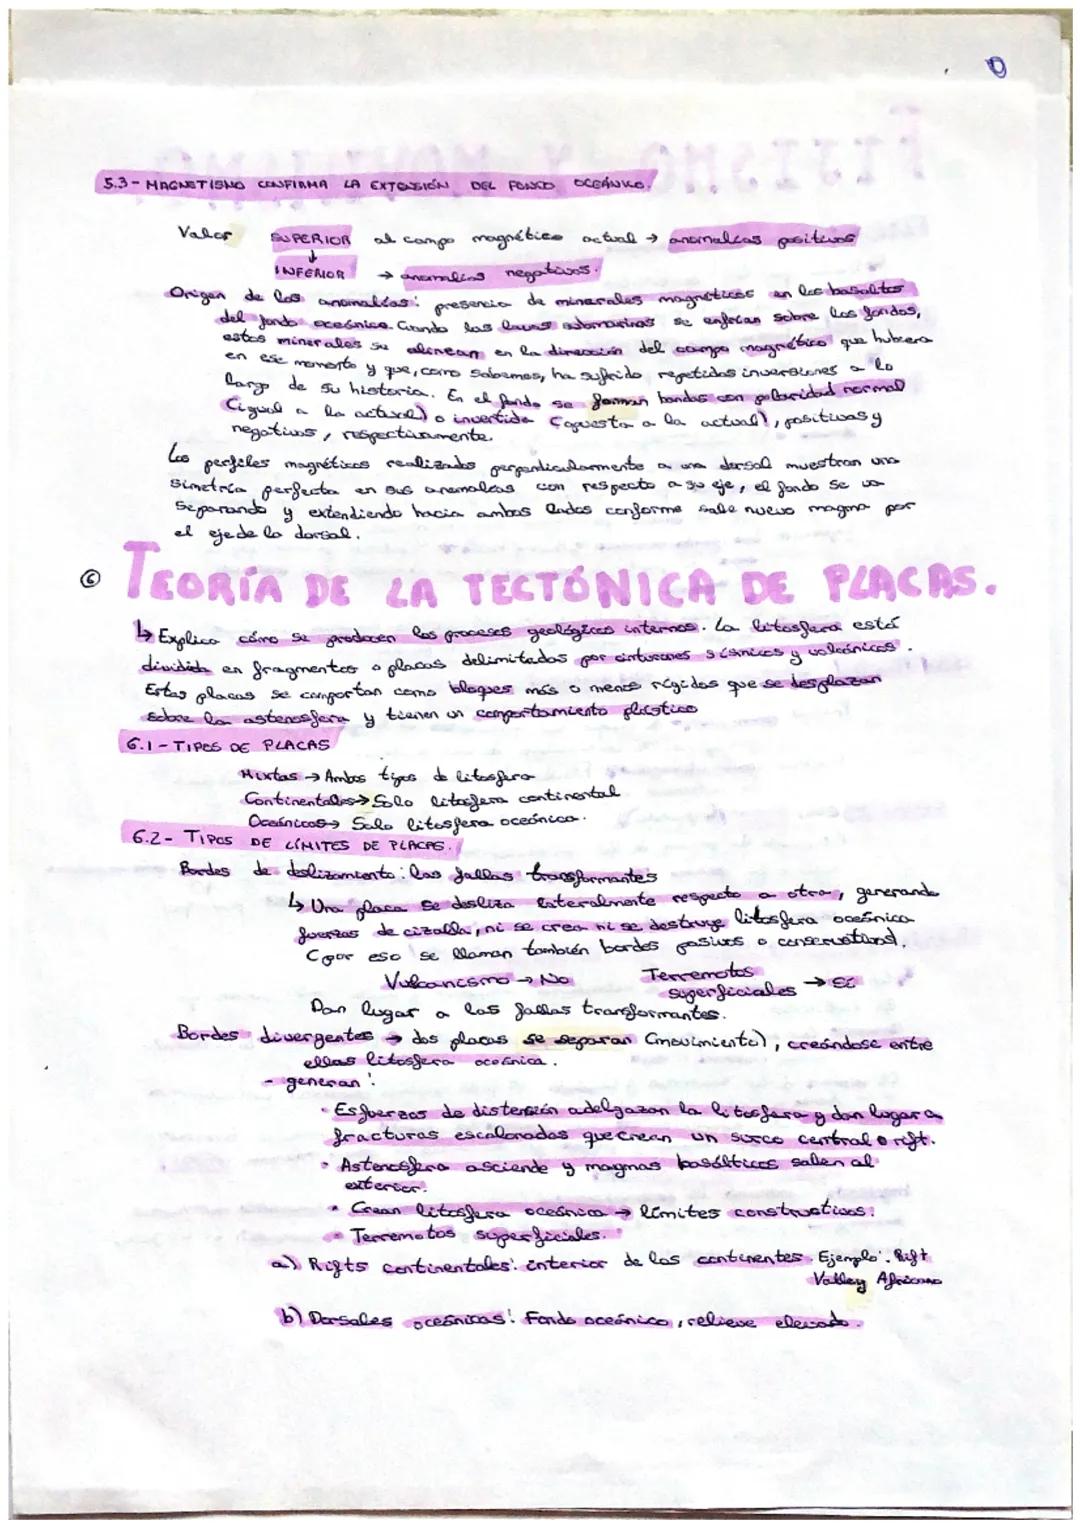 5.3- MAGNETISMO CONFIRMA LA EXTENSIÓN DEL FONDO OCEÁNICO.
Valor SUPERIOR al campo magnético actual → anomalías positivas
↓
INFERIOR → anomalías negativas.
Origen de las anomalías: presencia de minerales magnéticos en los basaltos
del fondo oceánico. Cuando las lavas submarinas se enfrían sobre los fondos,
estos minerales se alinean en la dirección del campo magnético que hubiera
en ese momento y que, como sabemos, ha sufrido repetidas inversiones a lo
largo de su historia. En el fondo se forman bandas con polaridad normal
(igual a la actual) o invertida (opuesta a la actual), positivas y
negativas, respectivamente.
Los perfiles magnéticos realizados perpendicularmente a una dorsal muestran una
simetría perfecta en sus anomalías con respecto a su eje, el fondo se va
separando y extendiendo hacia ambos lados conforme sale nuevo magma por
el eje de la dorsal.
⑥ TEORÍA DE LA TECTÓNICA DE PLACAS.
↳ Explica cómo se producen los procesos geológicos internos. La litosfera está
dividida en fragmentos o placas delimitadas por cinturones sísmicos y volcánicos.
Estas placas se comportan como bloques más o menos rígidos que se desplazan
sobre la astenosfera y tienen un comportamiento plástico
6.1- TIPOS DE PLACAS
Mixtas → Ambos tipos de litosfera
Continentales → Solo litosfera continental
Oceánicas → Solo litosfera oceánica.
6.2- TIPOS DE LÍMITES DE PLACAS.
Bordes de deslizamiento: las fallas transformantes
↳ Una placa se desliza lateralmente respecto a otra, generando
fuerzas de cizalla, ni se crea ni se destruye litosfera oceánica
(por eso se llaman también bordes pasivos o conservativos).
Vulcanismo → No Terremotos
superficiales → Sí
Dan lugar a las fallas transformantes.
Bordes divergentes → dos placas se separan (movimiento), creándose entre
ellas litosfera oceánica.
- generan:
· Esfuerzos de distensión adelgazan la litosfera y dan lugar a
fracturas escalonadas que crean un surco central o rift.
· Astenosfera asciende y magmas basálticos salen al
exterior.
· Crean litosfera oceánica → límites constructivos.
· Terremotos superficiales.
a) Rifts continentales: interior de los continentes. Ejemplo: Rift
Valley Africano
b) Dorsales oceánicas: Fondo oceánico, relieve elevado.